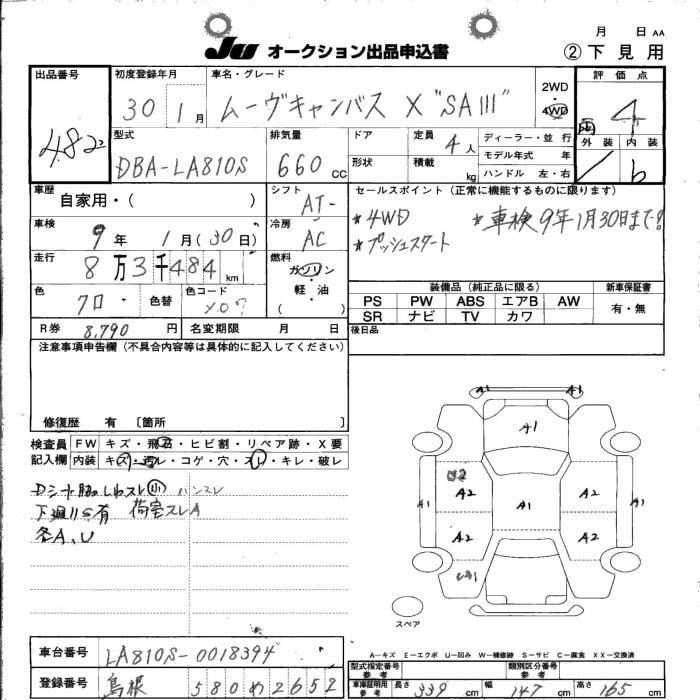 月 日 AA
JU オークション出品申込書 ②下見用
出品番号 482
初度登録年月 30 1月
車名・グレード ムーヴキャンバス X "SAIII"
2WD・4WD
評価点 4
外装 内装 b
型式 DBA-LA810S
排気量 660 CC
ドア
形状
定員 4人
積載 kg
ディーラー・並行
モデル年式 年
ハンドル 左・右
車歴 自家用・( )
シフト AT-
セールスポイント (正常に機能するものに限ります)
★4WD ★車検9年1月30日まで!
★プッシュスタート
車検 9年 1月(30日)
冷房 AC
走行 8万3千484km
燃料 ガソリン・軽・油 ( )
色 クロ・ 色替 色コード X07
装備品 (純正品に限る) 新車保証書
PS PW ABS エアB AW 有・無
SR ナビ TV カワ
R券 8,790円 名変期限 月 日
後日品
注意事項申告欄 (不具合内容等は具体的に記入してください)
修復歴 有 〔箇所 〕
検査員記入欄
FW キズ・飛石・ヒビ割・リペア跡・X要
内装 キズ・汚レ・コゲ・穴・スレ・キレ・破レ
Dシート脇しわスレ小 ハンスレ
下廻リサ有 荷室スレA
各A、U
A1
A1
A1 A1 A1
U2
A2 A2
A2 A2
UA1
スペア
A―キズ E―エクボ U―凹み W―補修跡 S―サビ C―腐食 XX―交換済
車台番号 LA810S-0018394
登録番号 島根 580 め 2652
型式指定番号 参考
類別区分番号 参考
車庫証明用 参考 長さ 339cm 幅 147cm 高さ 165cm